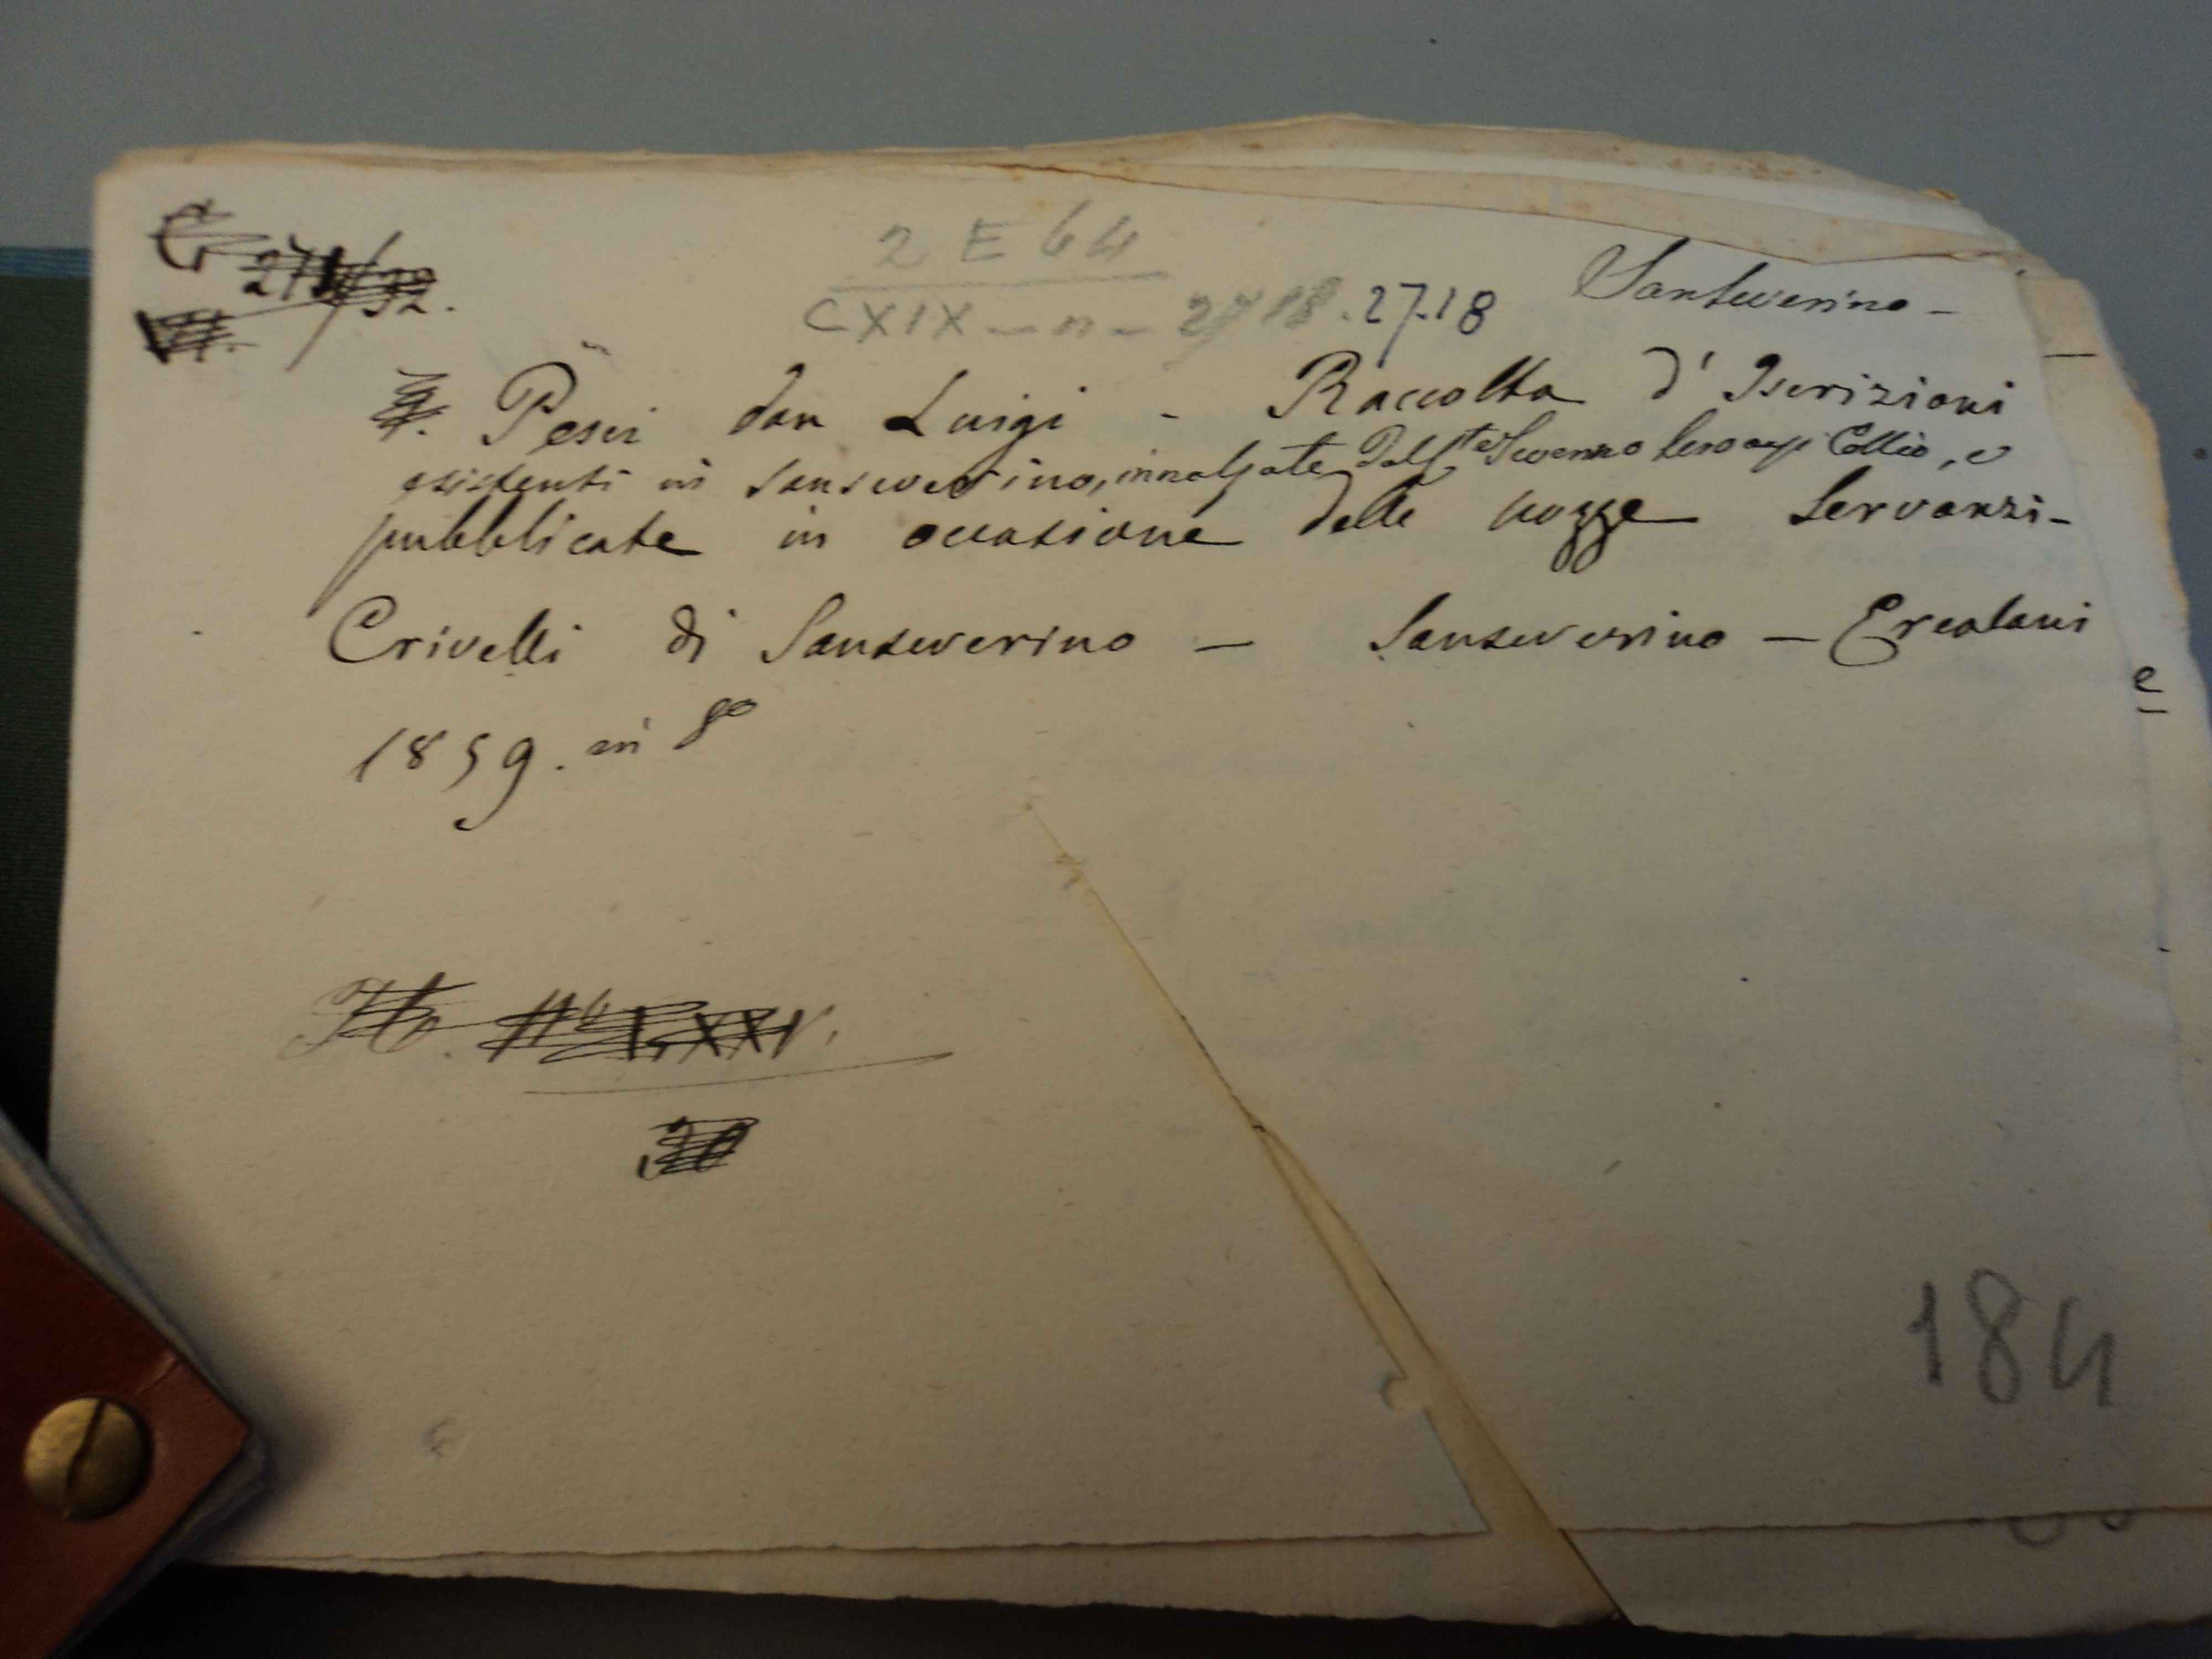 2 E 64
CXIX - n - 2718 . 27.18
Sanseverino -
Pesci don Luigi - Raccolta d'Iscrizioni
esistenti in Sanseverino, innalzate dal Cte Severino Servanzi Collio, e
pubblicate in occasione delle nozze Servanzi-
Crivelli di Sanseverino - Sanseverino - Ercolani
1859. in 8o
e
184